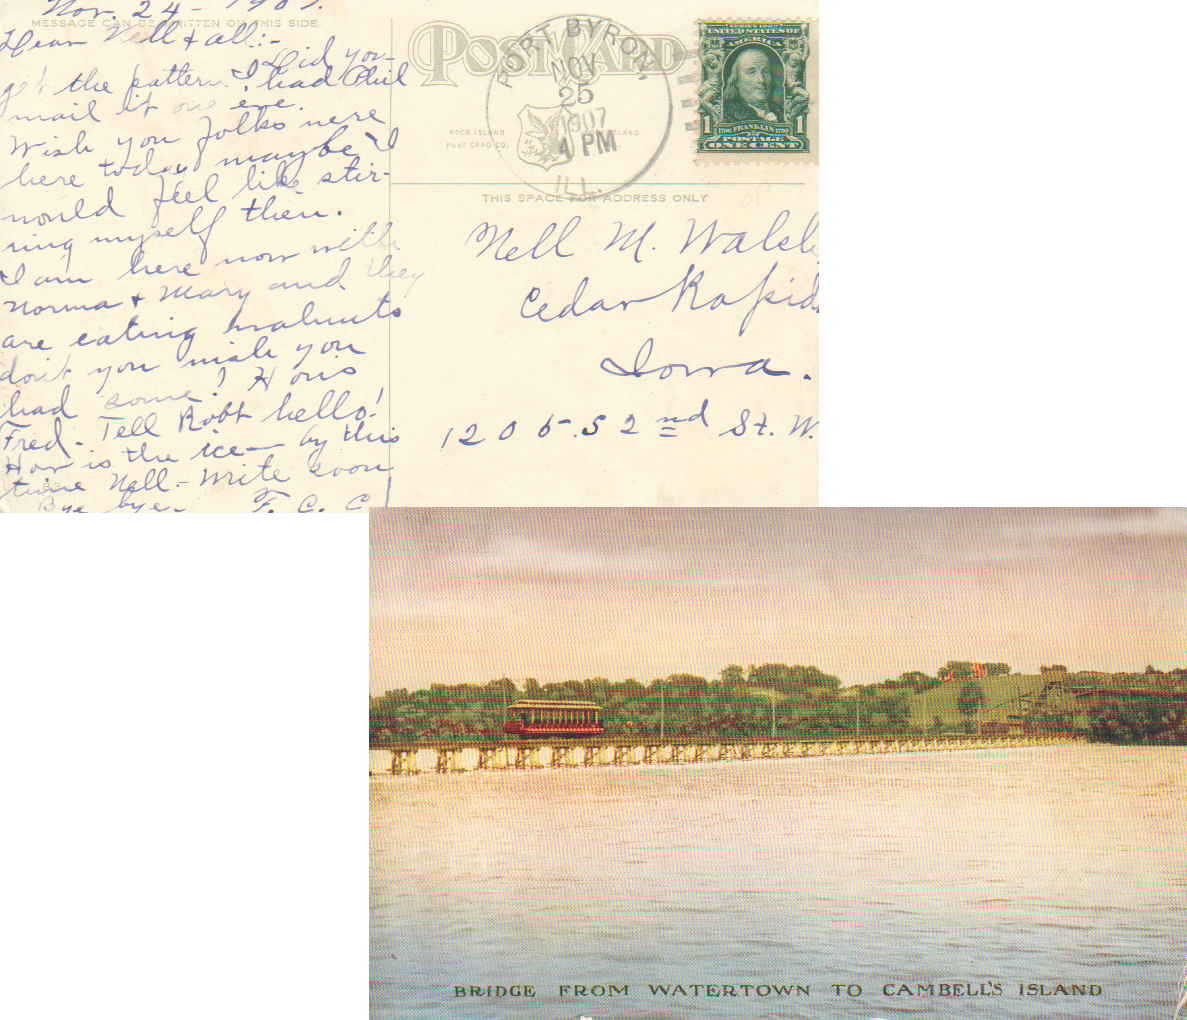 Nov. 24 - 1907.
MESSAGE CAN BE WRITTEN ON THIS SIDE
Dear Nell & all:-
Did you
get the pattern. I had Phil
mail it one eve.
Wish you folks were
here today maybe I
would feel like stir-
ring myself then.
I am here now with
Norma & Mary and they
are eating walnuts
don't you wish you
had some! How's
Fred - Tell Robt hello!
How is the ice - by this
time Nell - Write soon
Bye bye - F. C. C.
POST CARD
PORT BYRON,
NOV
25
1907
4 PM
ILL.
ROCK ISLAND
POST CARD CO.
ISLAND
UNITED STATES OF
AMERICA
1
1706 FRANKLIN 1790
POSTAGE
ONE CENT
THIS SPACE FOR ADDRESS ONLY
Nell M. Walsh
Cedar Rapids
Iowa.
1205. S 2nd St. W.
BRIDGE FROM WATERTOWN TO CAMBELL'S ISLAND